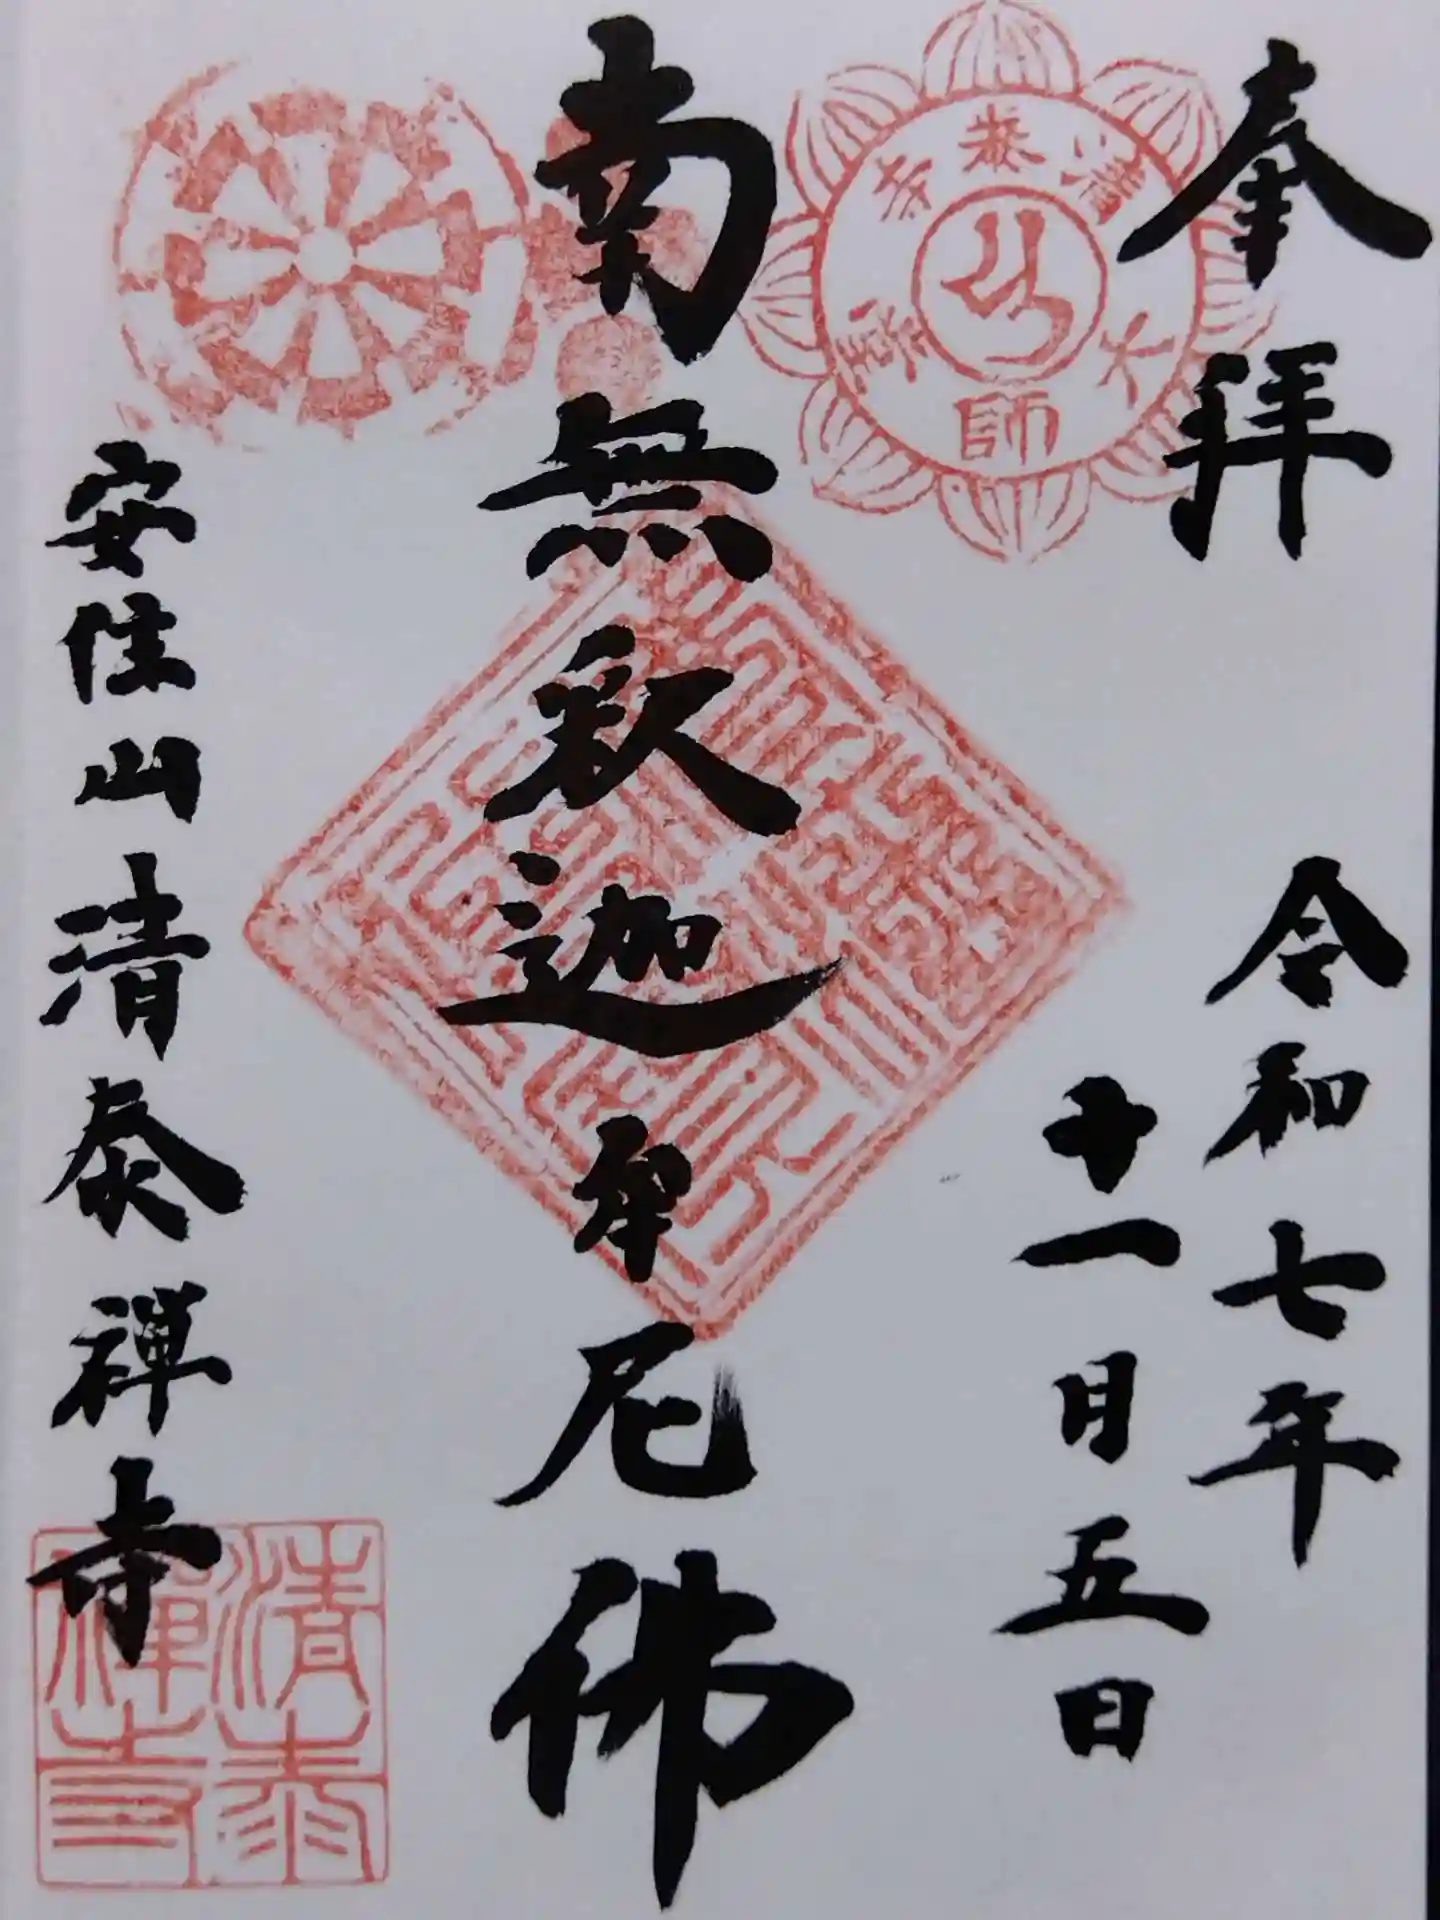 奉拝
令和七年
十一月五日
南無釈迦牟尼佛
安住山清泰禅寺
清泰寺
大師
清泰
禅寺